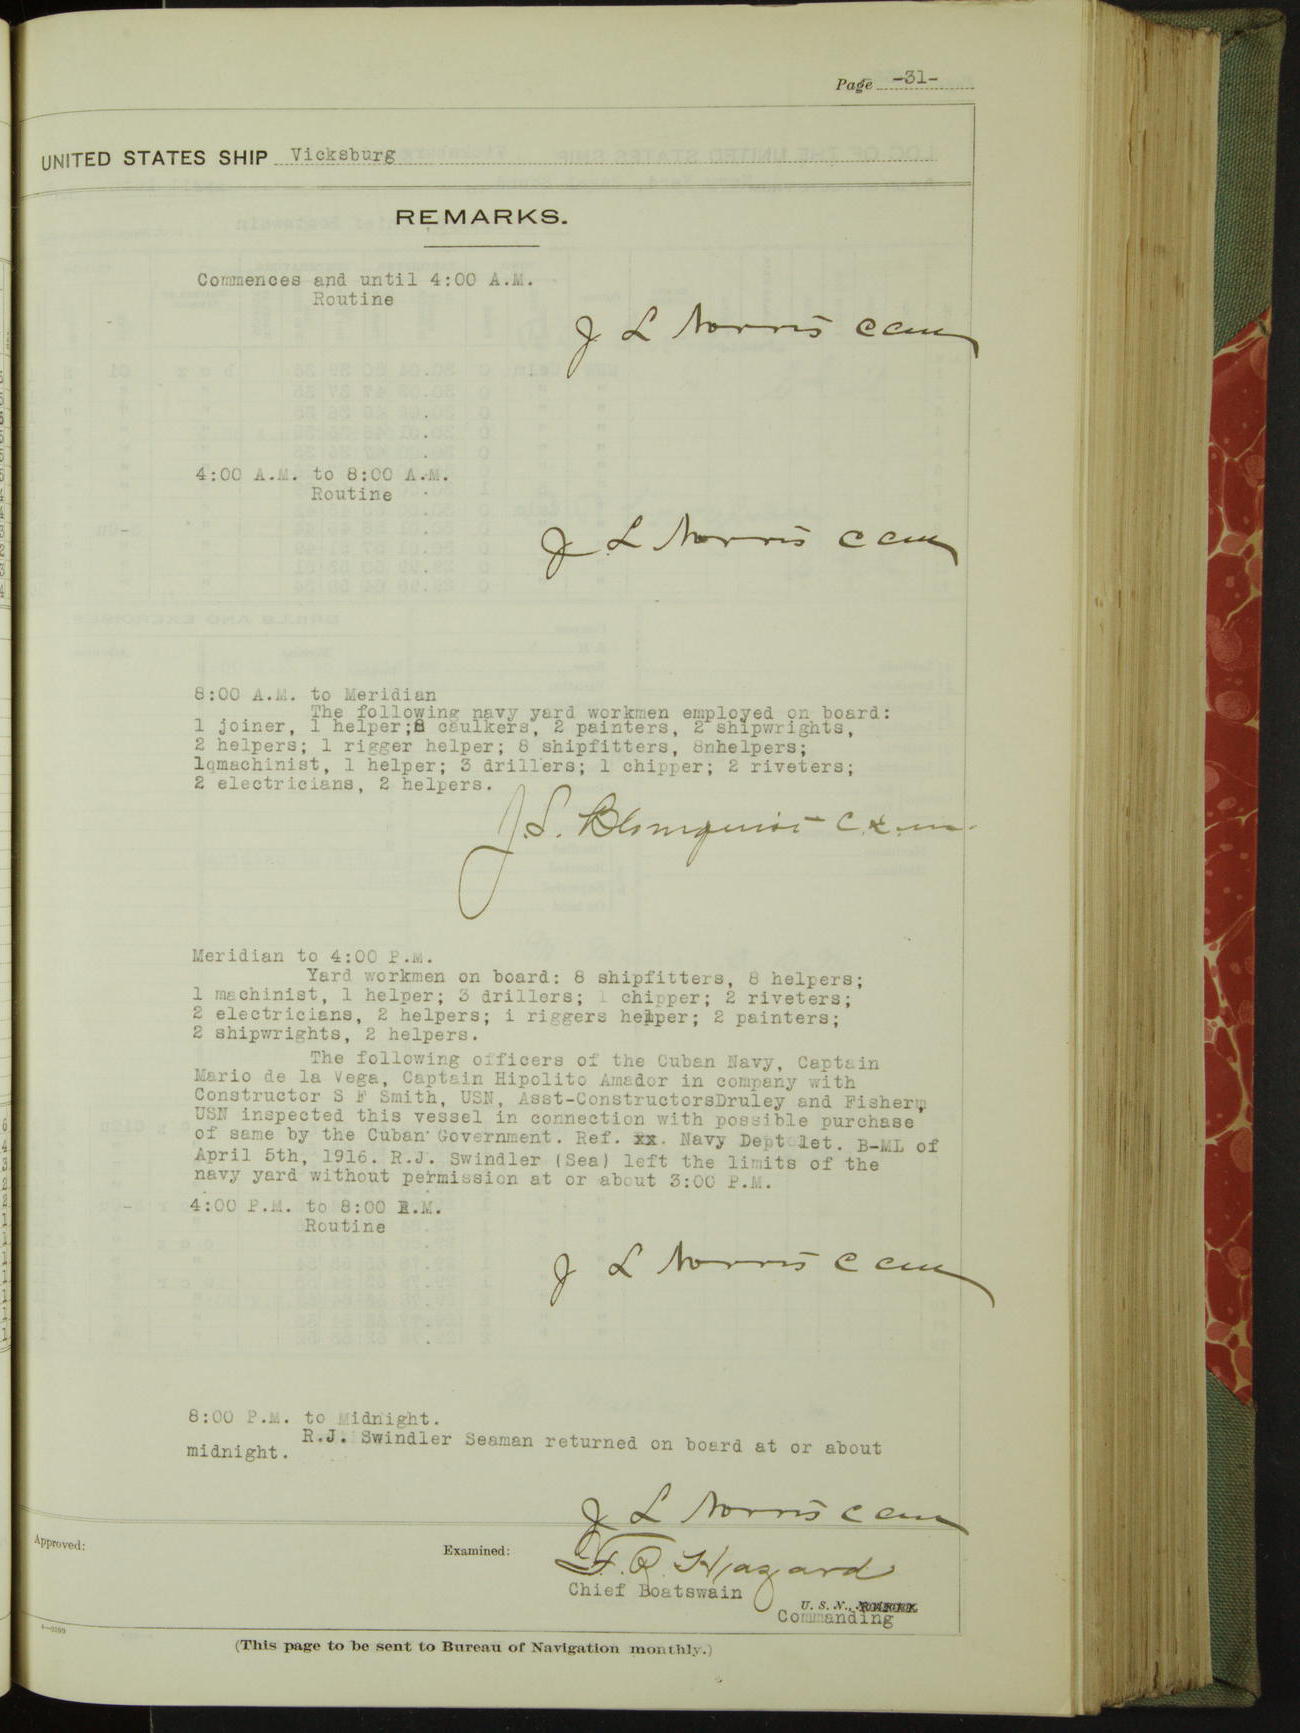 Page -31-
UNITED STATES SHIP Vicksburg
REMARKS.
Commences and until 4:00 A.M.
Routine
J L Norris CCM
4:00 A.M. to 8:00 A.M.
Routine
J L Norris CCM
8:00 A.M. to Meridian
The following navy yard workmen employed on board:
1 joiner, 1 helper;8 caulkers, 2 painters, 2 shipwrights,
2 helpers; 1 rigger helper; 8 shipfitters, 8nhelpers;
1qmachinist, 1 helper; 3 drillers; 1 chipper; 2 riveters;
2 electricians, 2 helpers.
J.S. Blomquist
Meridian to 4:00 P.M.
Yard workmen on board: 8 shipfitters, 8 helpers;
1 machinist, 1 helper; 3 drillers; 1 chipper; 2 riveters;
2 electricians, 2 helpers; i riggers helper; 2 painters;
2 shipwrights, 2 helpers.
The following officers of the Cuban Navy, Captain
Mario de la Vega, Captain Hipolito Amador in company with
Constructor S F Smith, USN, Asst-ConstructorsDruley and Fisher,
USN inspected this vessel in connection with possible purchase
of same by the Cuban Government. Ref. xx. Navy Dept let. B-ML of
April 5th, 1916. R.J. Swindler (Sea) left the limits of the
navy yard without permission at or about 3:00 P.M.
4:00 P.M. to 8:00 P.M.
Routine
J L Norris CCM
8:00 P.M. to Midnight.
R.J. Swindler Seaman returned on board at or about
midnight.
J L Norris CCM
Approved:
Examined:
F.R. Hazard
Chief Boatswain
U. S. N.,
Commanding
(This page to be sent to Bureau of Navigation monthly.)